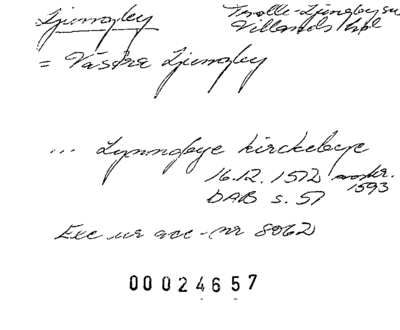 Ljungby
Trolle-Ljungby sn
Villands hd
= Västra Ljungby
... Lynngbye kirckebye
16.12.1572
1593
DAB s. 57
Exc ur acc-nr 8062
00024657